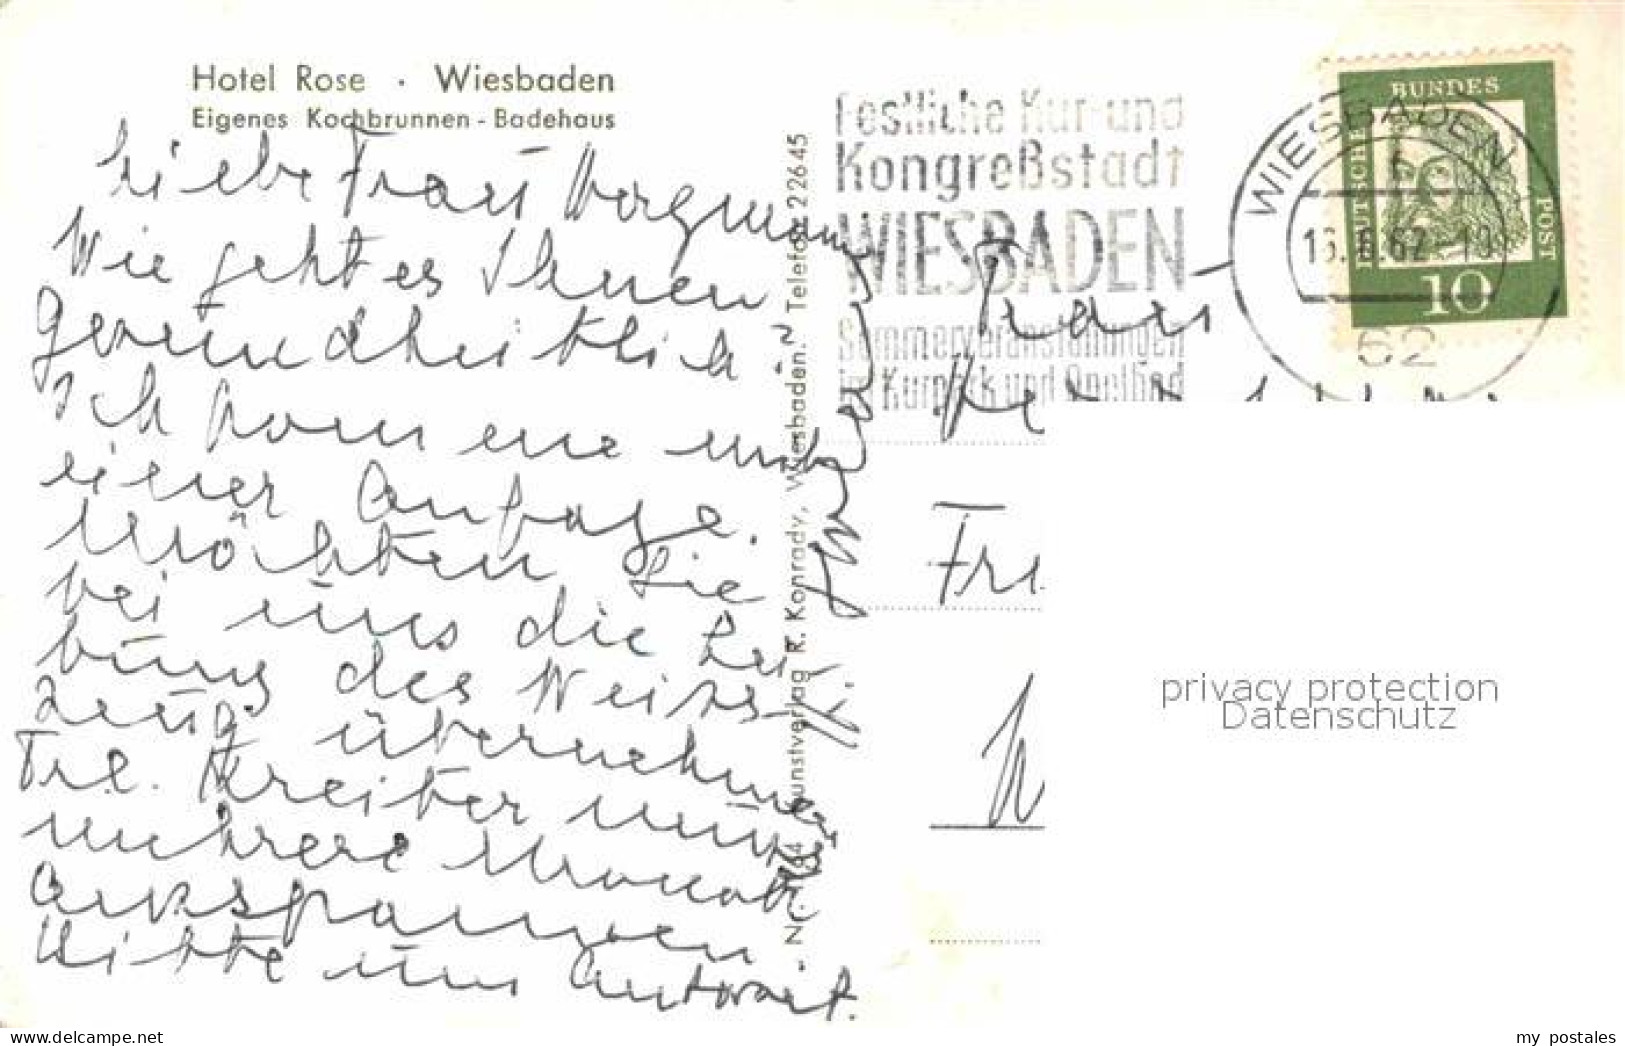 Hotel Rose · Wiesbaden
Eigenes Kochbrunnen-Badehaus
Liebe Frau Wagmann
Wie geht es Ihnen
gesundheitlich?
Ich komme mit
einer Anfrage.
Möchten Sie
bei uns die Lei-
tung des Weiss-
zeug übernehmen
Frl. Kreiter muss
mehrere Monate
ausspannen
Bitte um Antwort.
Nr. Kunstverlag R. Konrady, Wiesbaden. Telefon 22645
Festliche Kur- und
Kongreßstadt
WIESBADEN
Sommerveranstaltungen
im Kurpark und Opelbad
WIESBADEN
62
DEUTSCHE
BUNDES
POST
10
Frau
privacy protection
Datenschutz
my postales